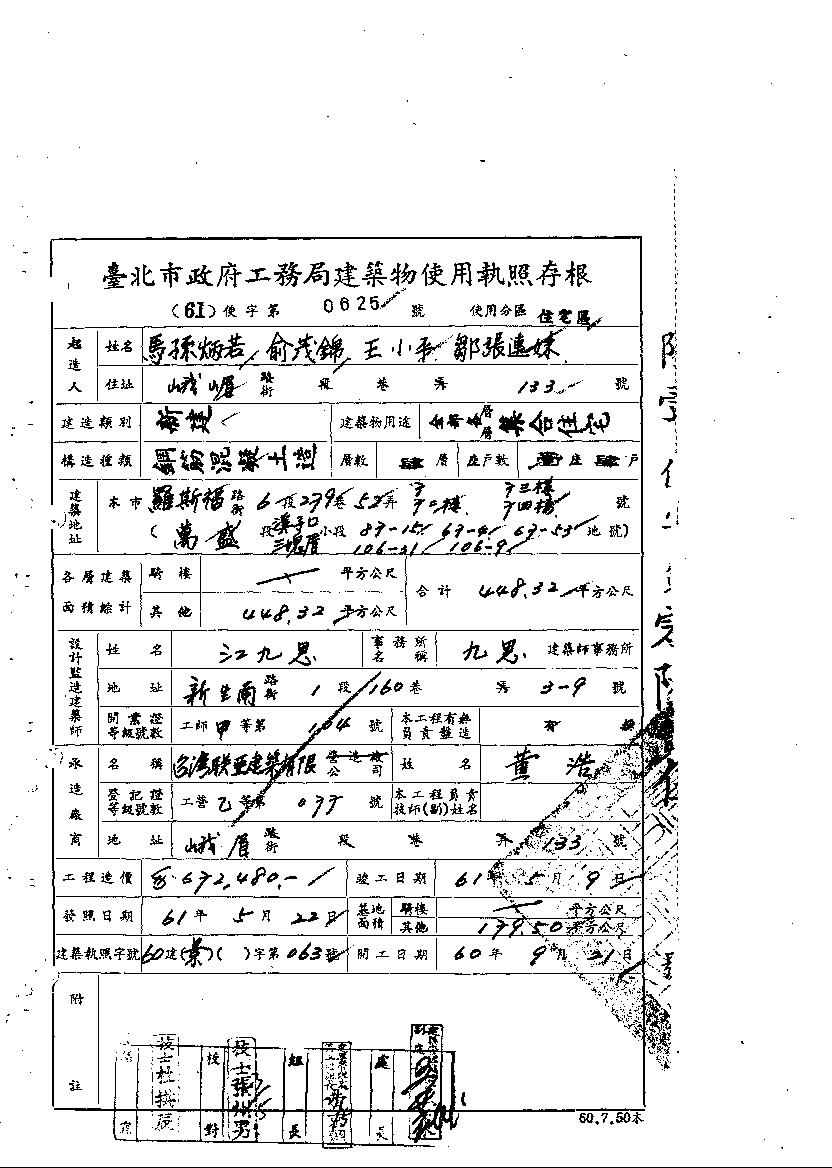 臺北市政府工務局建築物使用執照存根
(61) 使字第 0625 號 使用分區 住宅區
起造人 姓名 馬孫炳若 俞茂錦 王小平 鄒張連妹
住址 峨嵋 路街 段 巷 弄 133 號
建造類別 新建 建築物用途 集合住宅
構造種類 鋼筋混凝土造 層數 肆 層 座戶數 壹 座 肆 戶
建築地址 本市 羅斯福 路街 6 段 239 巷 52 弄 號
(萬盛 段 溪子口 小段 87-15 67-53 地號)
三塊厝 106-31 106-9
各層建築面積綜計 騎樓 平方公尺 合計 448.32 平方公尺
其他 448.32 平方公尺
設計監造建築師 姓名 江九思 事務所名稱 九思 建築師事務所
地址 新生南 路街 1 段 160 巷 弄 3-9 號
開業證等級號數 工師 甲 等第 104 號 本工程有無負責監造 有
承造廠商 名稱 台灣聯亞建築有限 營造廠公司 姓名 黃浩
登記證等級號數 工營 乙 等第 號 本工程負責技師(副)姓名
地址 峨眉 路街 段 巷 弄 133 號
工程造價 672,480.- 竣工日期 61 年 5 月 9 日
發照日期 61 年 5 月 22 日 基地面積 騎樓 平方公尺
其他 179.50 平方公尺
建築執照字號 60 建(景)( )字第 063 號 開工日期 60 年 9 月 21 日
附註
技士 校對 技士 組長 處長
60.7.50本